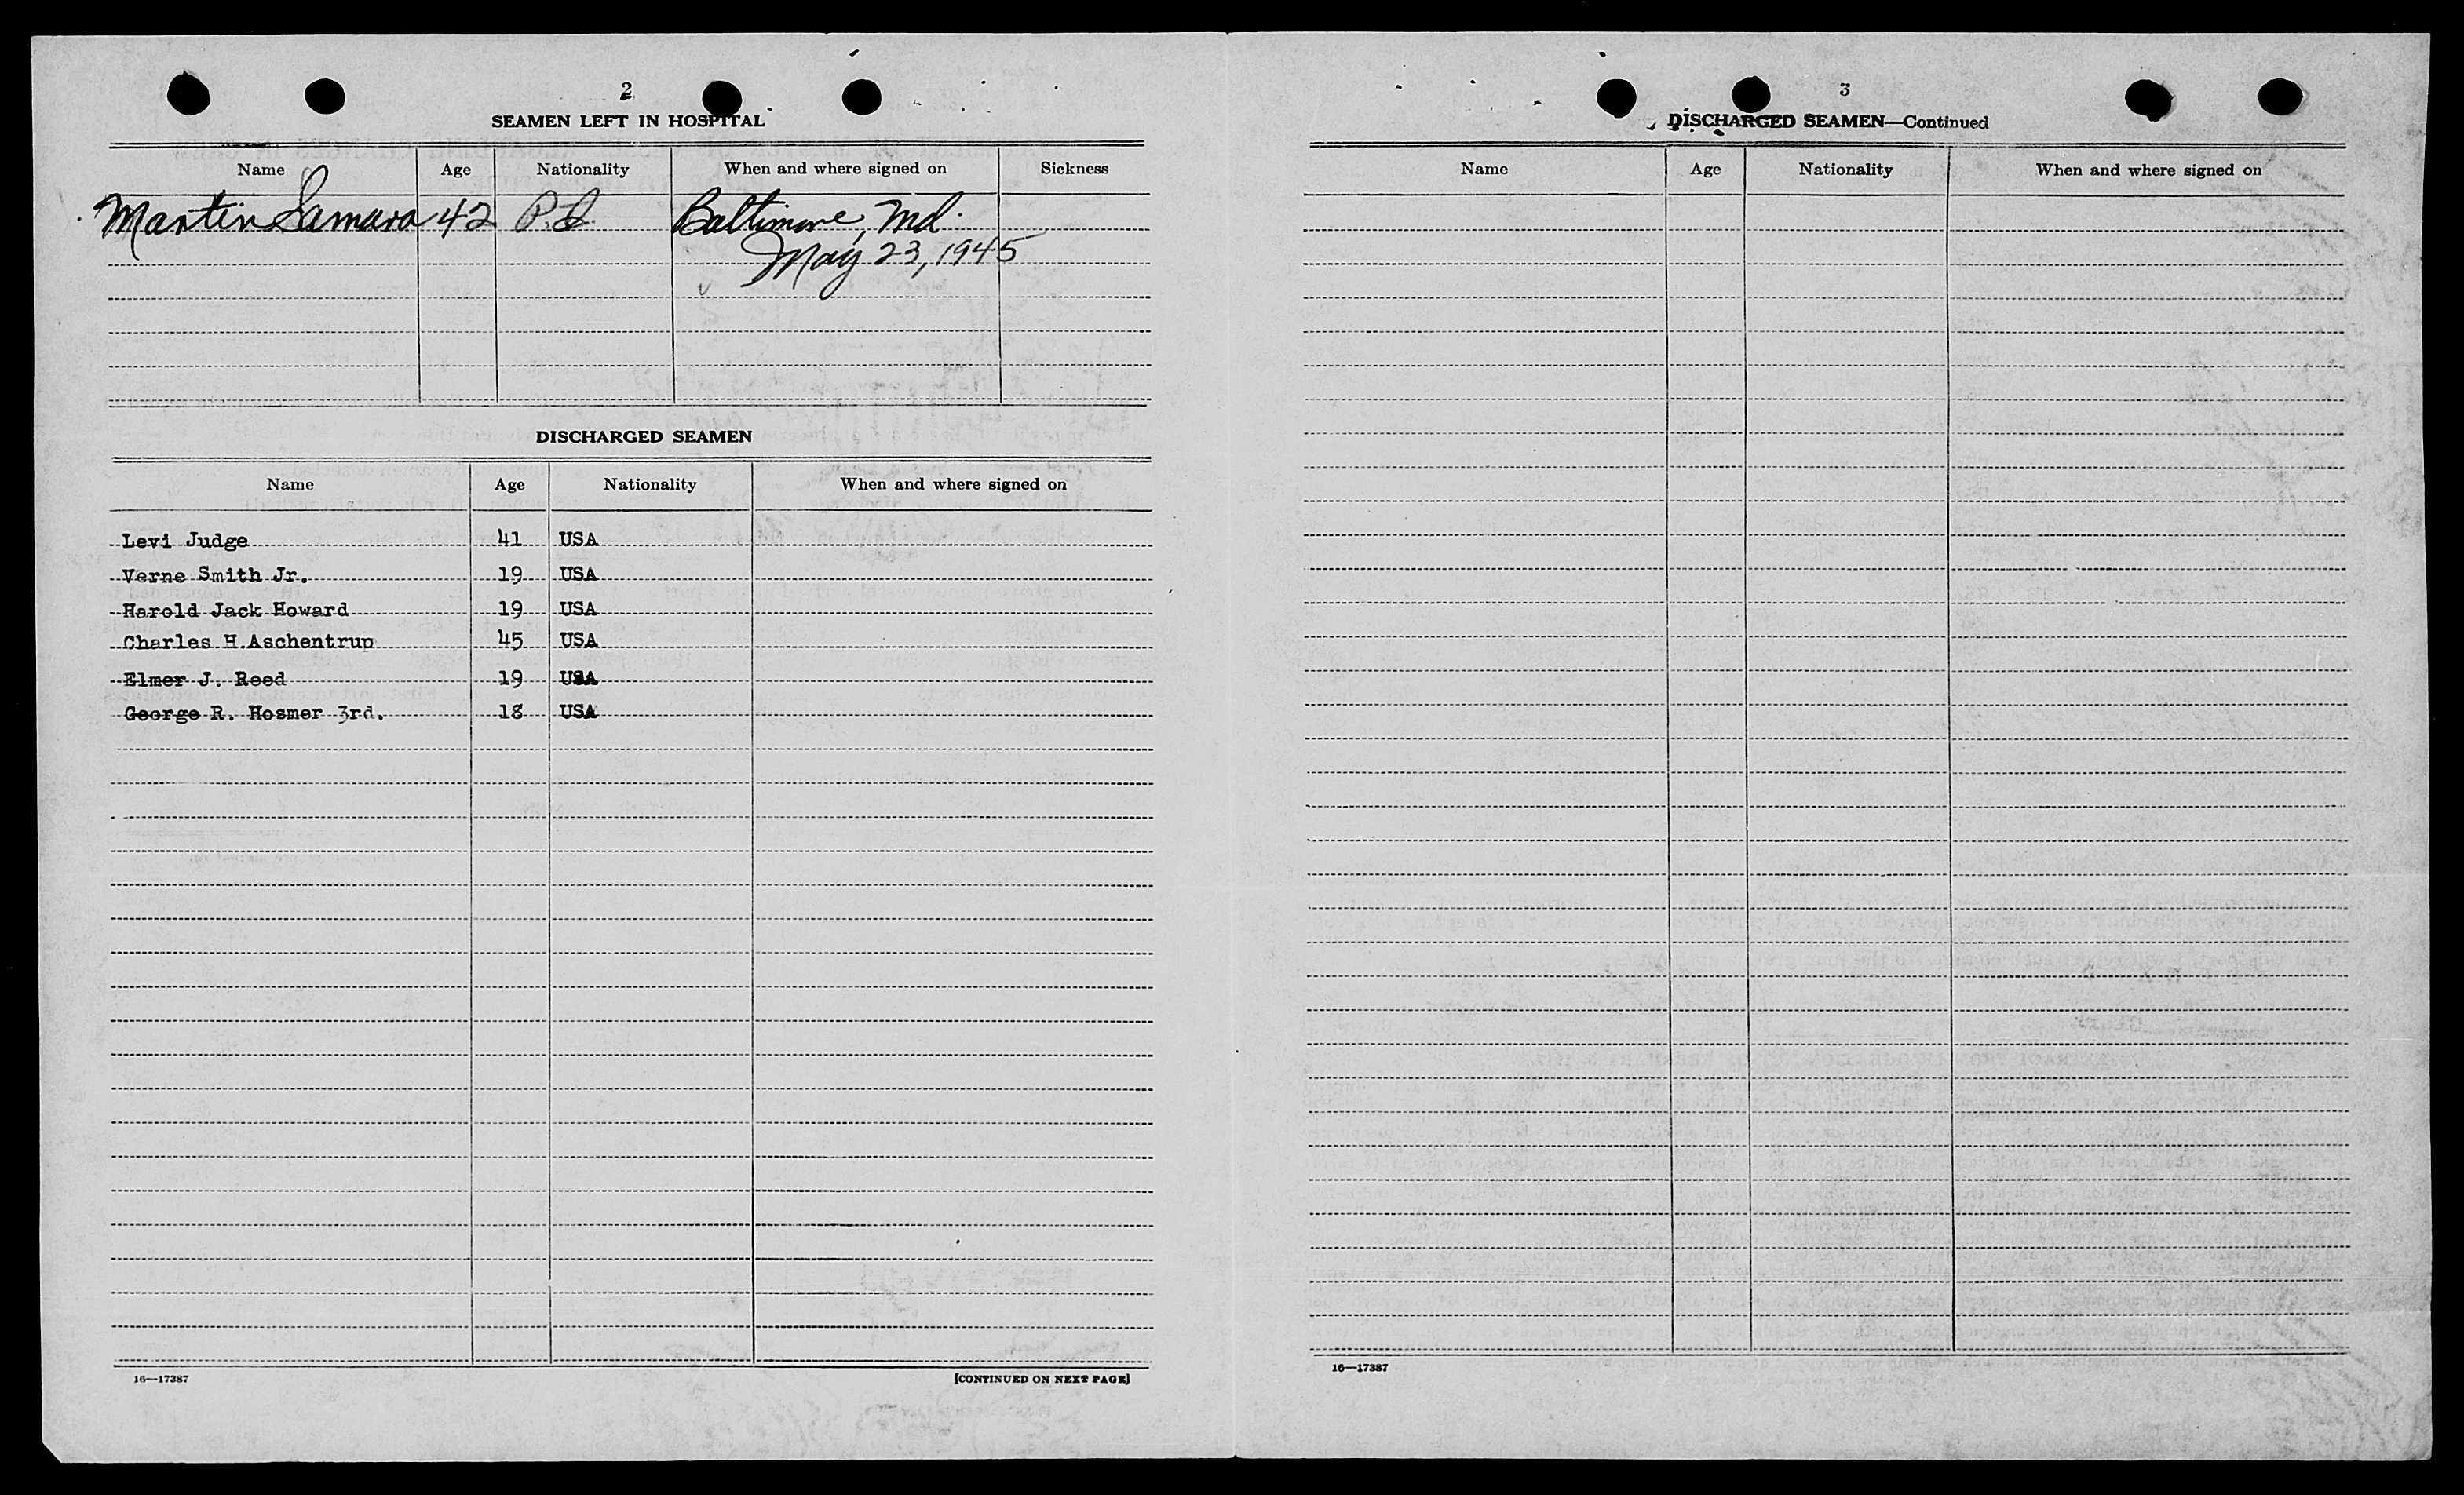 2
SEAMEN LEFT IN HOSPITAL
Name Age Nationality When and where signed on Sickness
Martin Samara 42 P.I. Baltimore, Md.
May 23, 1945
DISCHARGED SEAMEN
Name Age Nationality When and where signed on
Levi Judge 41 USA
Verne Smith Jr. 19 USA
Harold Jack Howard 19 USA
Charles H.Aschentrup 45 USA
Elmer J. Reed 19 USA
George R. Hosmer 3rd. 18 USA
16—17387 [CONTINUED ON NEXT PAGE]
3
DISCHARGED SEAMEN—Continued
Name Age Nationality When and where signed on
16—17387